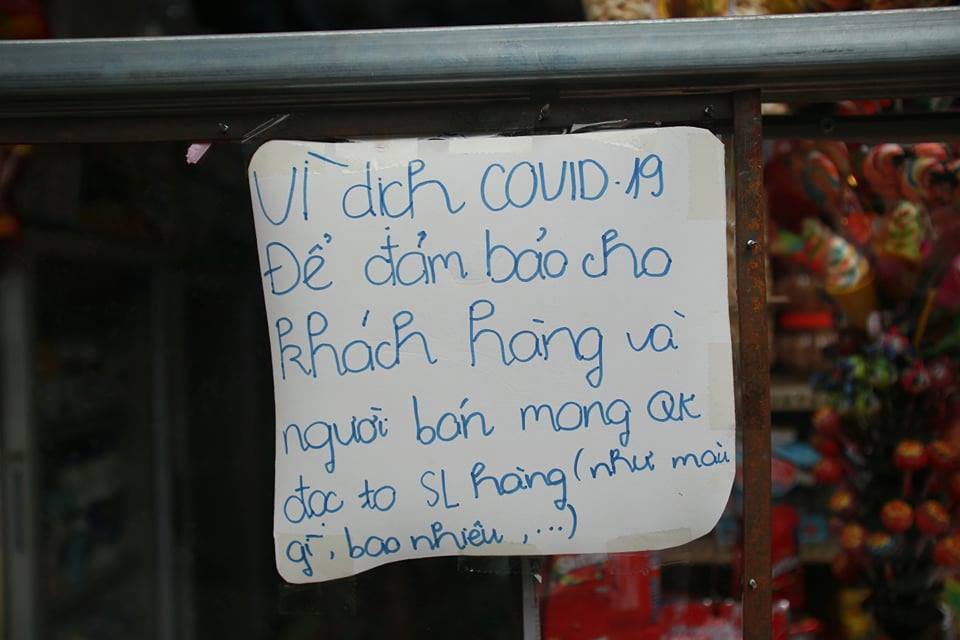 Vì dịch COVID.19
Để đảm bảo cho
khách hàng và
người bán mong QK
đọc to SL hàng (như màu
gì, bao nhiêu, ...)